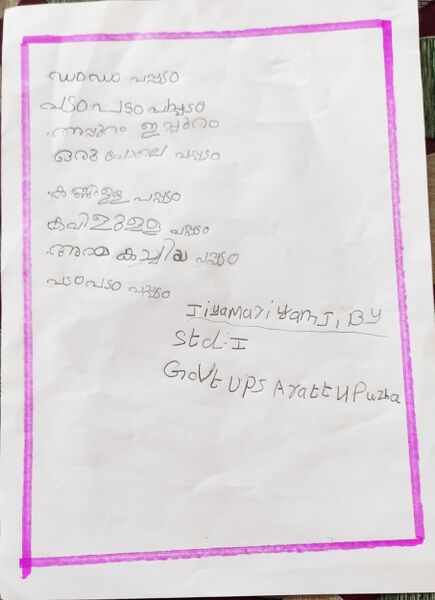 ഡഠഡഠ പപ്പടം
പടം പടം പപ്പടം
അപ്പുറം ഇപ്പുറം
ഒരു പോലെ പപ്പടം
കണ്ണുള്ള പപ്പടം
കവിളുള്ള പപ്പടം
അമ്മ കാച്ചിയ പപ്പടം
പടം പടം പപ്പടം
Jiyamariyam Jiby
Std:- I
Govt UPS Arattupuzha